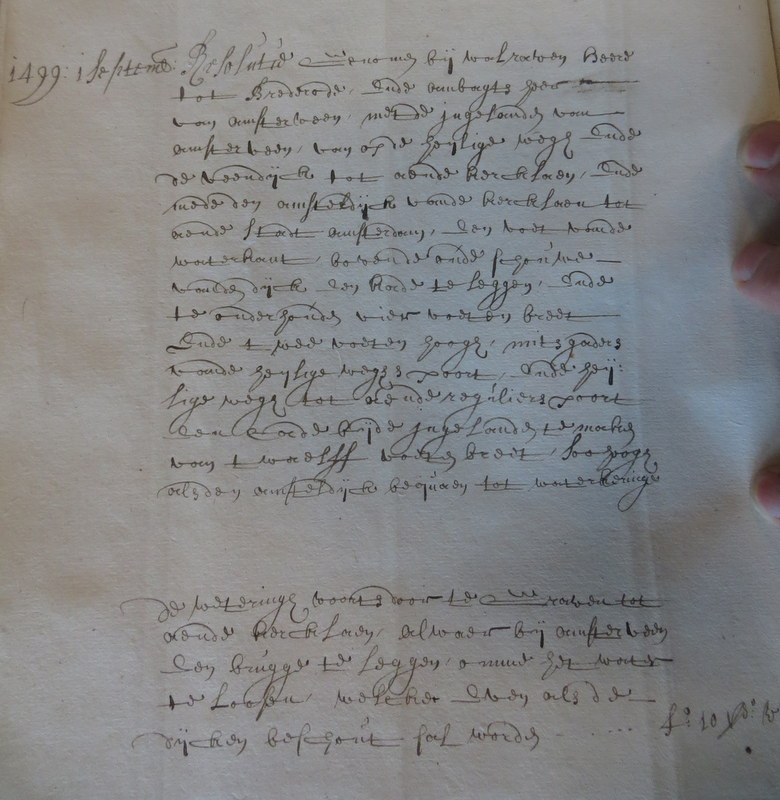 1499: 1 septemb: Resolutie Genomen bij walraven Heere
tot Brederode, Ende ambagts heer
van amsterveen, met de jngelanden van
amsterveen, van op de heylige wegh Ende
de veendijck tot aende kercklaen, Ende
mede den amsteldijck vande kercklaen tot
aende stadt amsterdam, Een voet vande
waterkant, bovende oude schouwe
vanden dijck Een kade te leggen, Ende
te onderhouden vier voeten breet
Ende twee voeten hoogh, mitsgaders
vande heylige weghs poort, Ende heij:
lige wegh tot aende reguliers poort
Een Cade bijde jngelanden te maken
van twaelff voeten breet, soo hoogh
als den amsteldijck bequaem tot waterkeringe
de weteringh voorts door te Graven tot
aende kercklaen, alwaer bij amsterveen
Een brugge te leggen, omme het water
te loosen, welcke Even als de
dijcken beschout sal worden . . . . . fo: 10